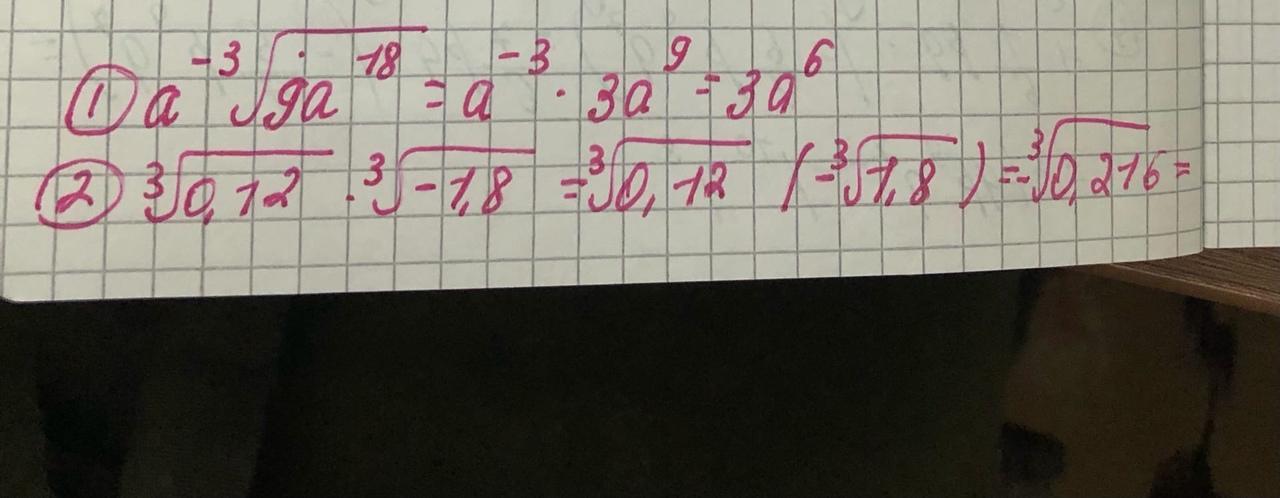 ① a⁻³√9a¹⁸ = a⁻³ · 3a⁹ = 3a⁶
② ³√0,12 · ³√-1,8 = ³√0,12 (-³√1,8) = -³√0,216 =